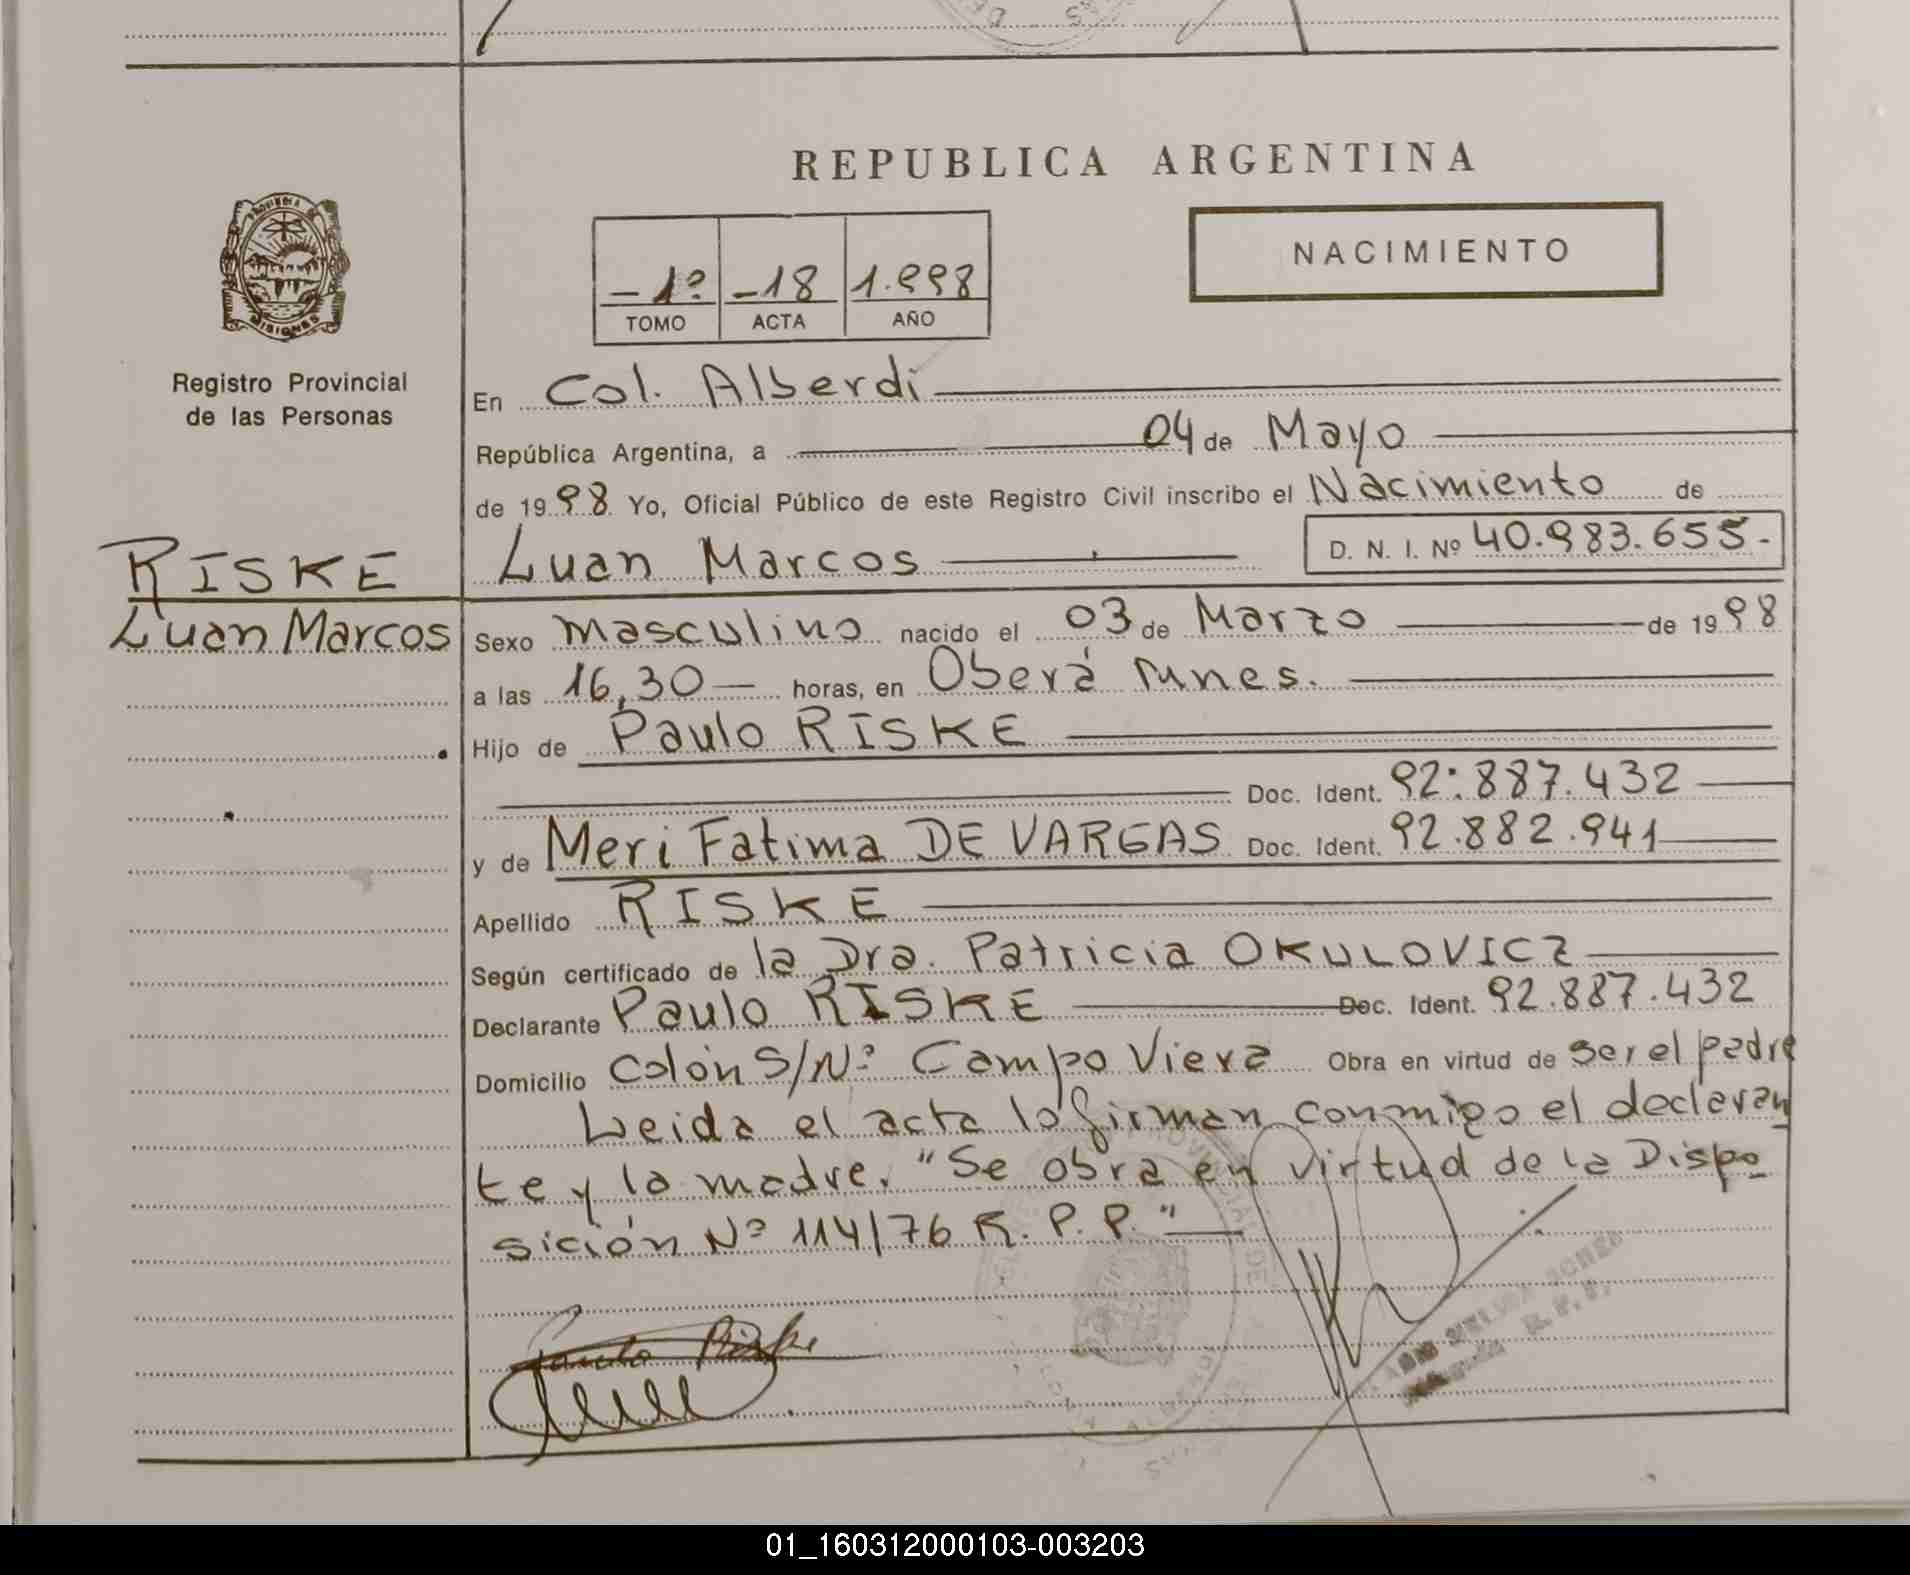 REPUBLICA ARGENTINA
NACIMIENTO
-1º -18 1.998
TOMO ACTA AÑO
PROVINCIA DE
MISIONES
Registro Provincial
de las Personas
En Col. Alberdi
República Argentina, a 04 de Mayo
de 1998 Yo, Oficial Público de este Registro Civil inscribo el Nacimiento de
Luan Marcos D. N. I. Nº 40.983.655.-
RISKE
Luan Marcos
Sexo masculino nacido el 03 de Marzo de 1998
a las 16,30 horas, en Oberá
Hijo de Paulo RISKE
Doc. Ident. 92.887.432
y de Meri Fatima DE VARGAS Doc. Ident. 92.882.941
Apellido RISKE
Según certificado de la Dra. Patricia OKULOVICZ
Declarante Paulo RISKE Doc. Ident. 92.887.432
Domicilio Colón S/Nº Campo Viera Obra en virtud de ser el padre
Leida el acta lo firman conmigo el declaran
te y la madre. "Se obra en virtud de la Dispo
sición Nº 114/76 R. P. P."
01_160312000103-003203